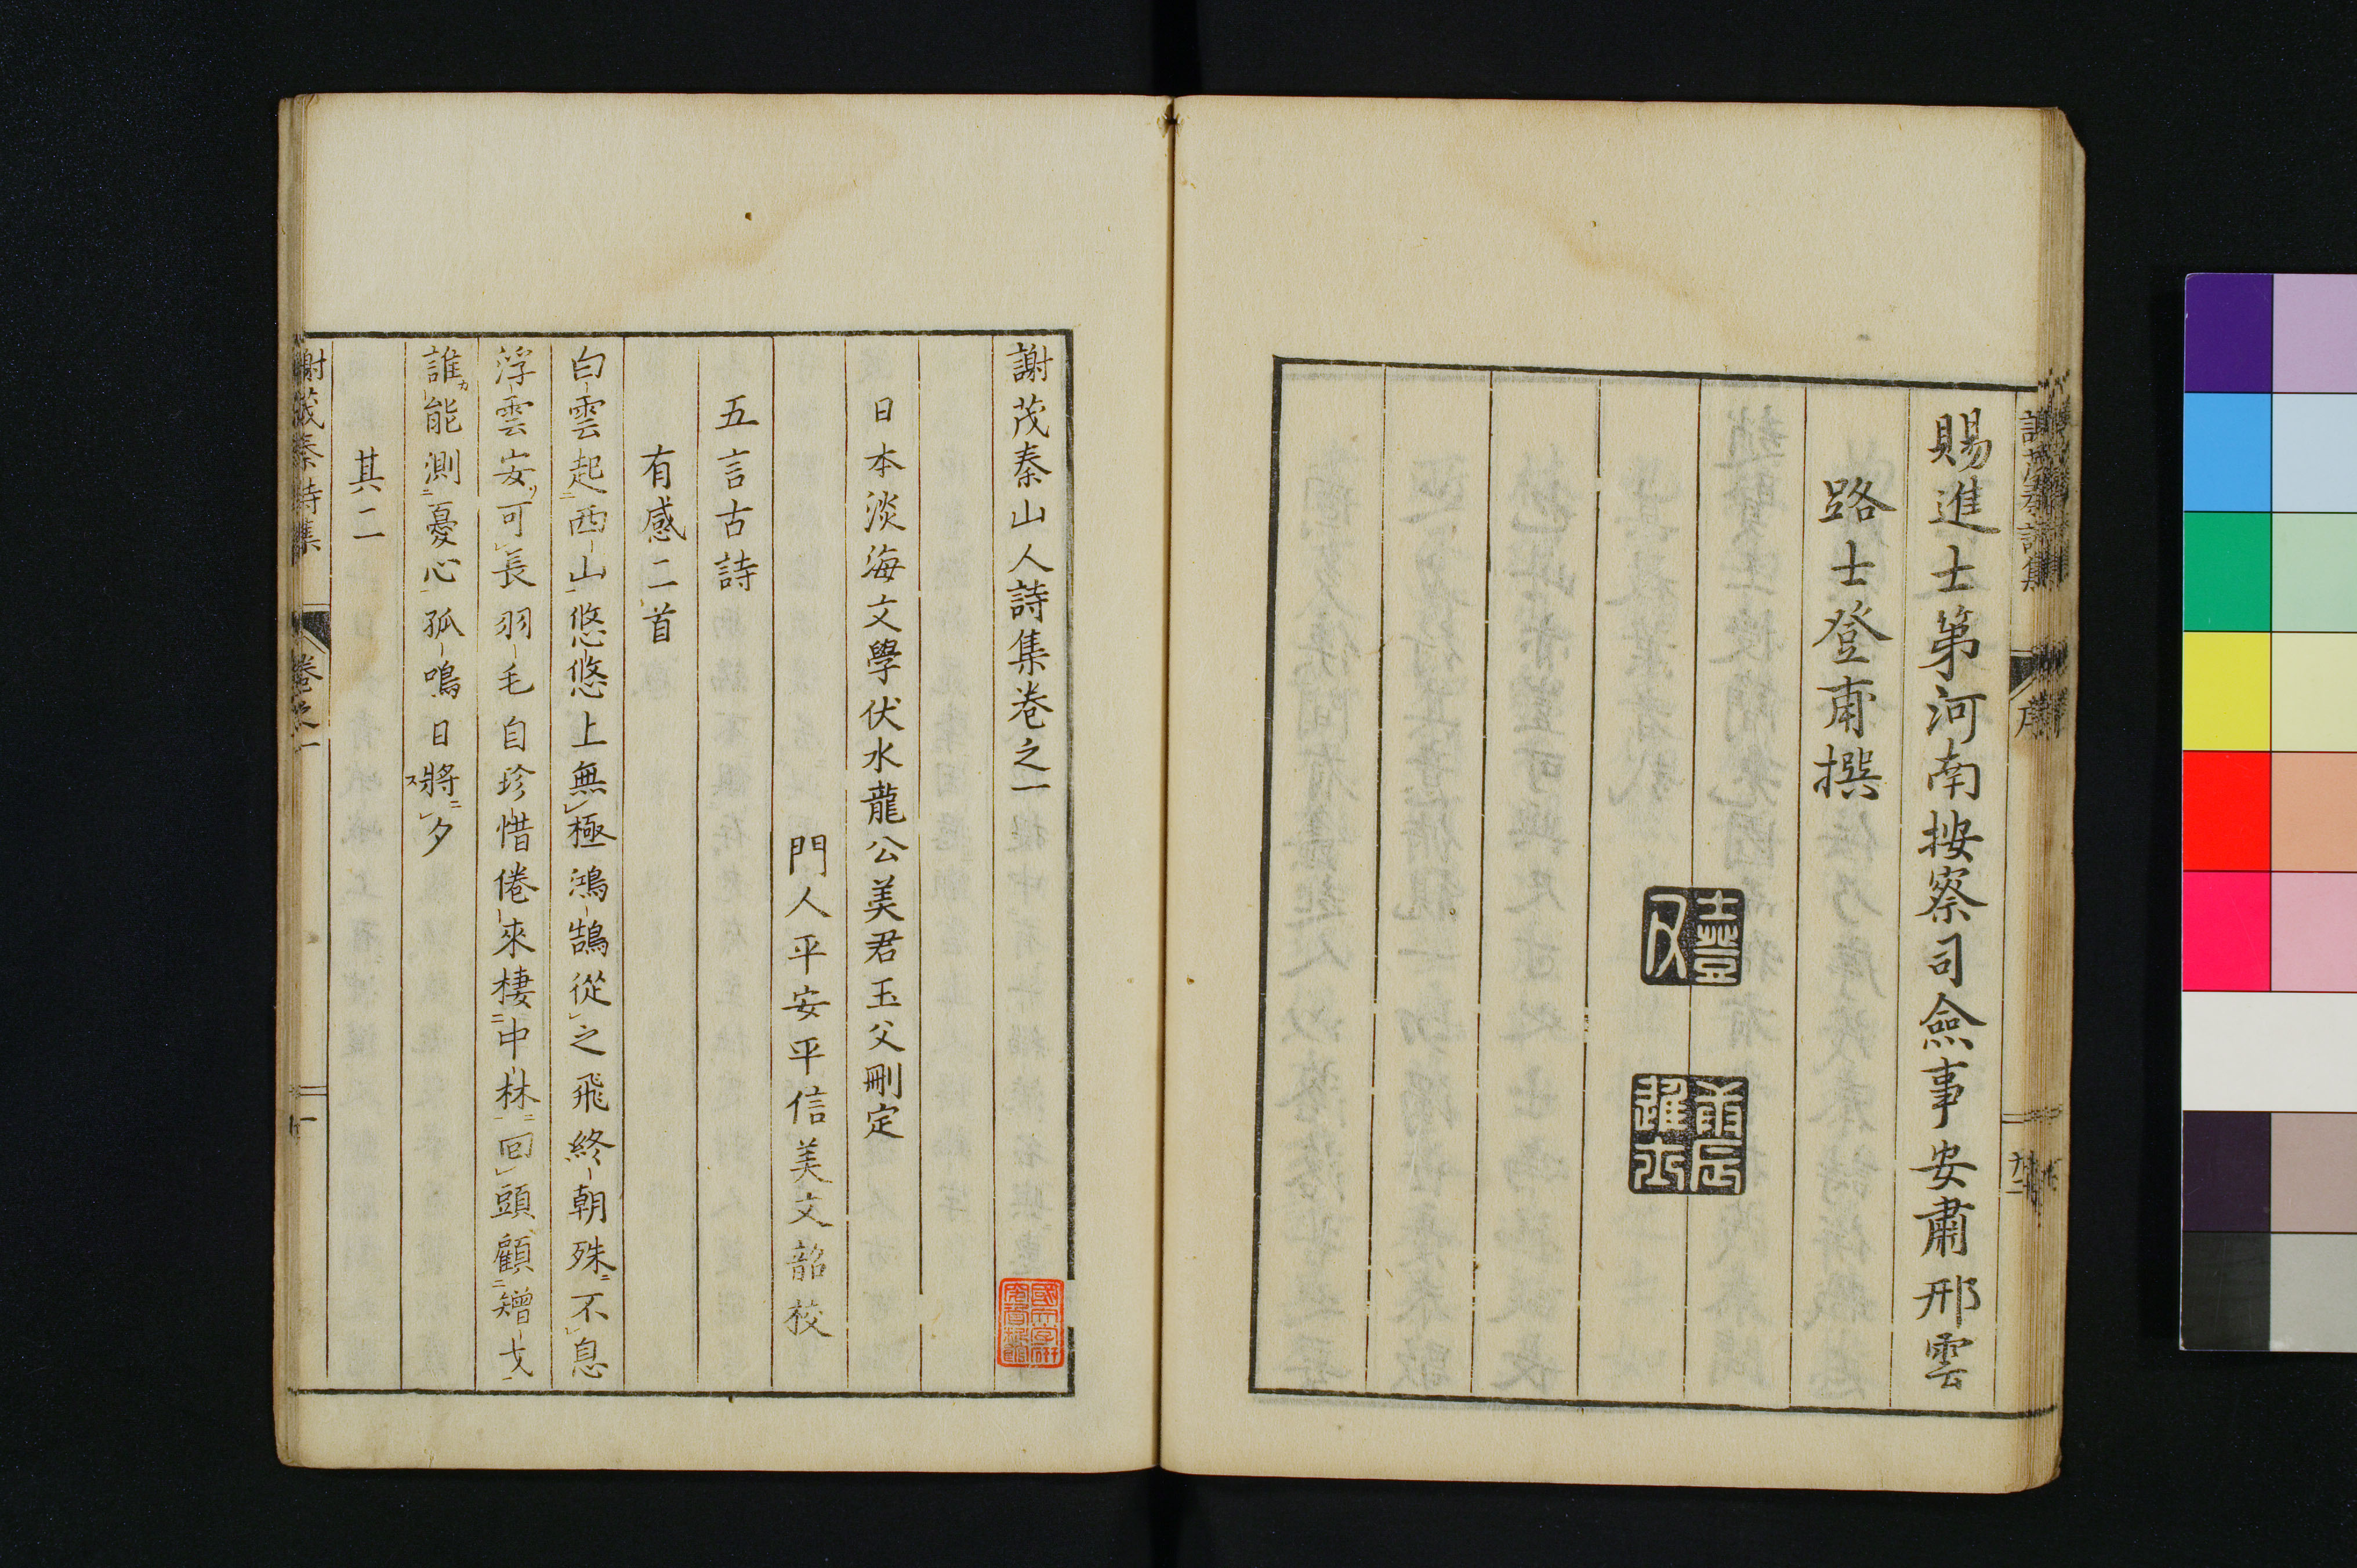 賜進士第河南按察司僉事安肅邢雲
路士登甫撰
謝茂秦山人詩集卷之一
日本淡海文學伏水龍公美君玉父刪定
門人平安平信美文韶校
五言古詩
有感二首
白雲起西山悠悠上無極鴻鵠從之飛終朝殊不息
浮雲安可長羽毛自珍惜倦來棲中林回頭顧矰弋
誰能測憂心孤鳴日將夕
其二
謝茂秦詩集 卷之一 一